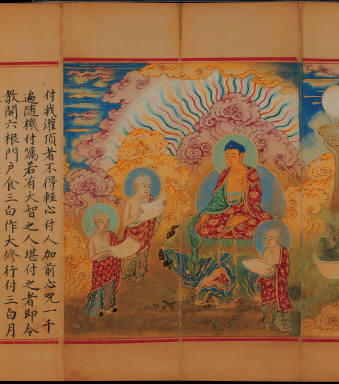 付我灌頂者不得輕心付人加前心咒一千
遍随機付嘱若有大智之人堪付之者即令
教閉六根門户食三白作大修行付三白月